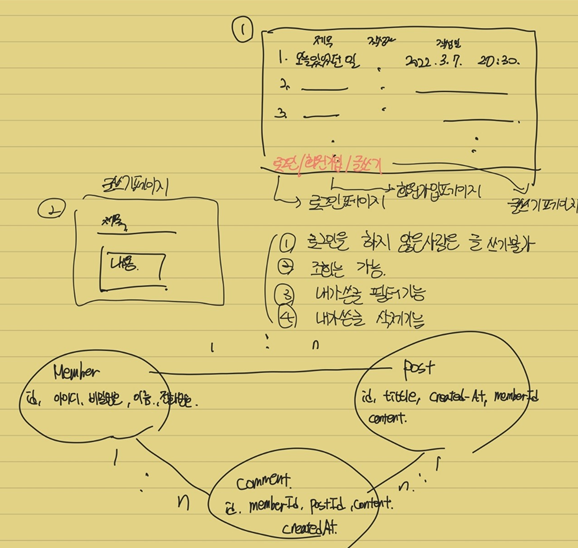 ①
제목 작성자 작성일
1. 오늘있었던 일 2022.3.7. 20:30.
2.
3.
로그인/회원가입/글쓰기
로그인페이지 회원가입페이지 글쓰기페이지
글쓰기페이지
②
제목
내용.
① 로그인을 하지 않은사람은 글 쓰기불가
② 조회는 가능.
③ 내가쓴글 필터기능
④ 내가쓴글 삭제기능
1 : n
Member
id, 아이디, 비밀번호, 이름, 전화번호.
post
id, tittle, created-At, memberId
content.
1 : n
n : 1
comment.
id, memberId, postId, content.
createdAt.